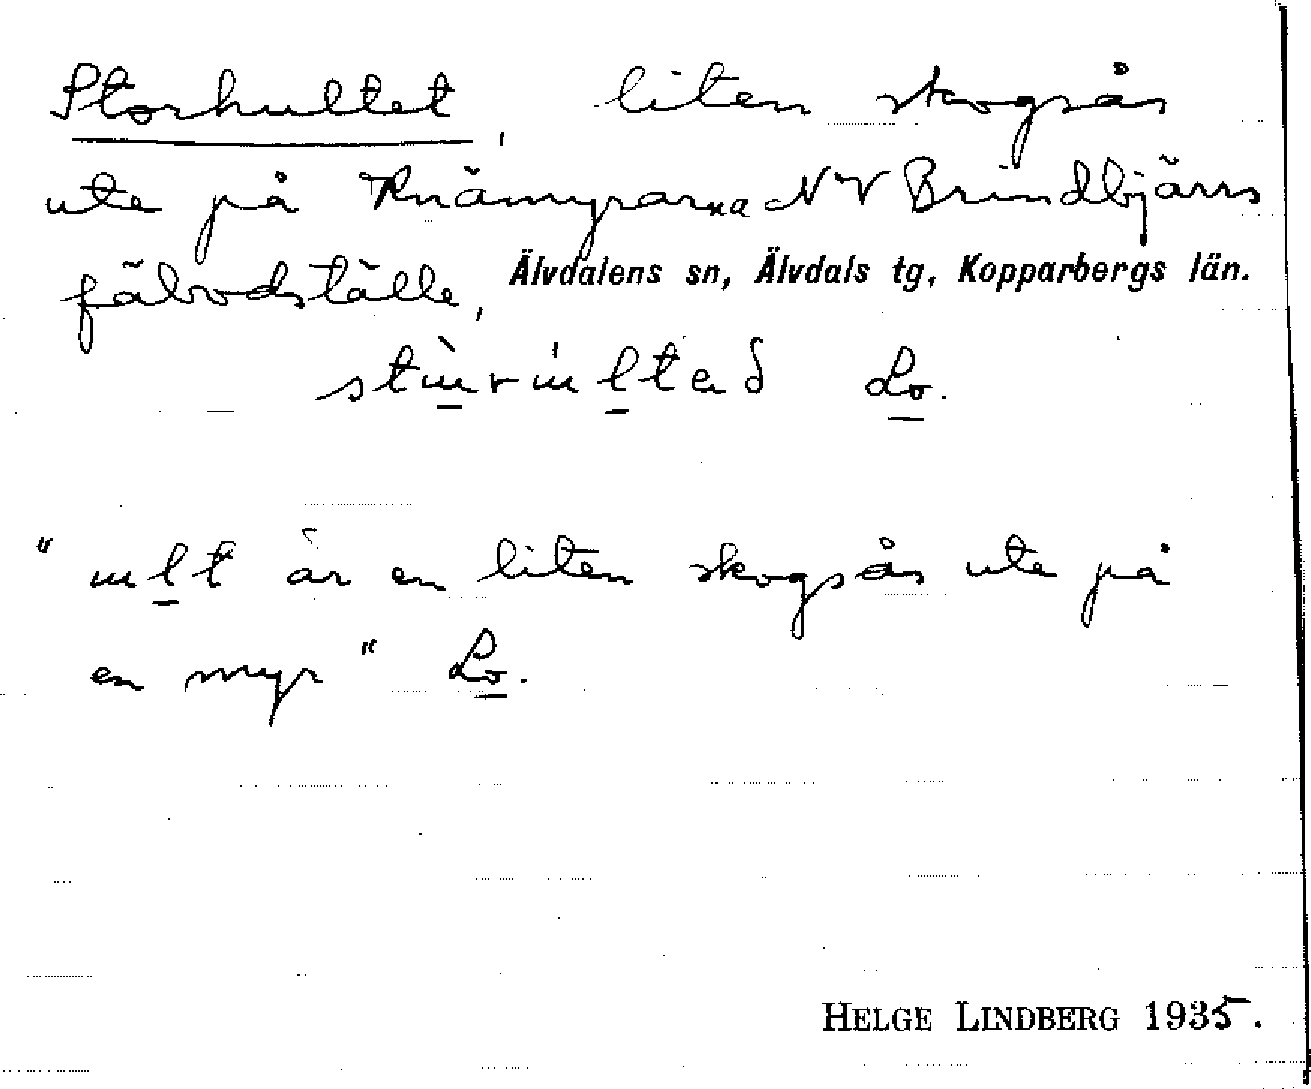 Storhultet, liten skogsås
ute på Knämyrarna NV Brindbjärrs
fäbodställe, Älvdalens sn, Älvdals tg, Kopparbergs län.
Lo.
" ult är en liten skogsås ute på
en myr " Lo.
HELGE LINDBERG 1935.